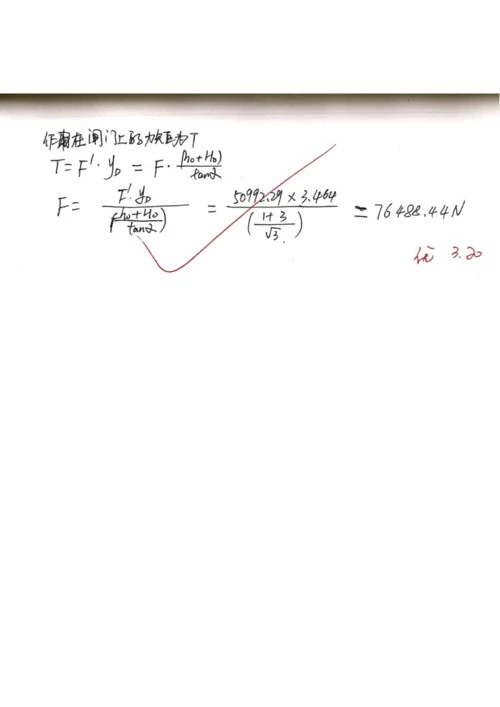 作用在闸门上的力矩为T
T=F'·y_D = F·(h₀+H₀)/tanα
F= F'·y_D/((h₀+H₀)/tanα) = 50992.29×3.464/((1+3)/√3) = 76488.44N
优 3.20